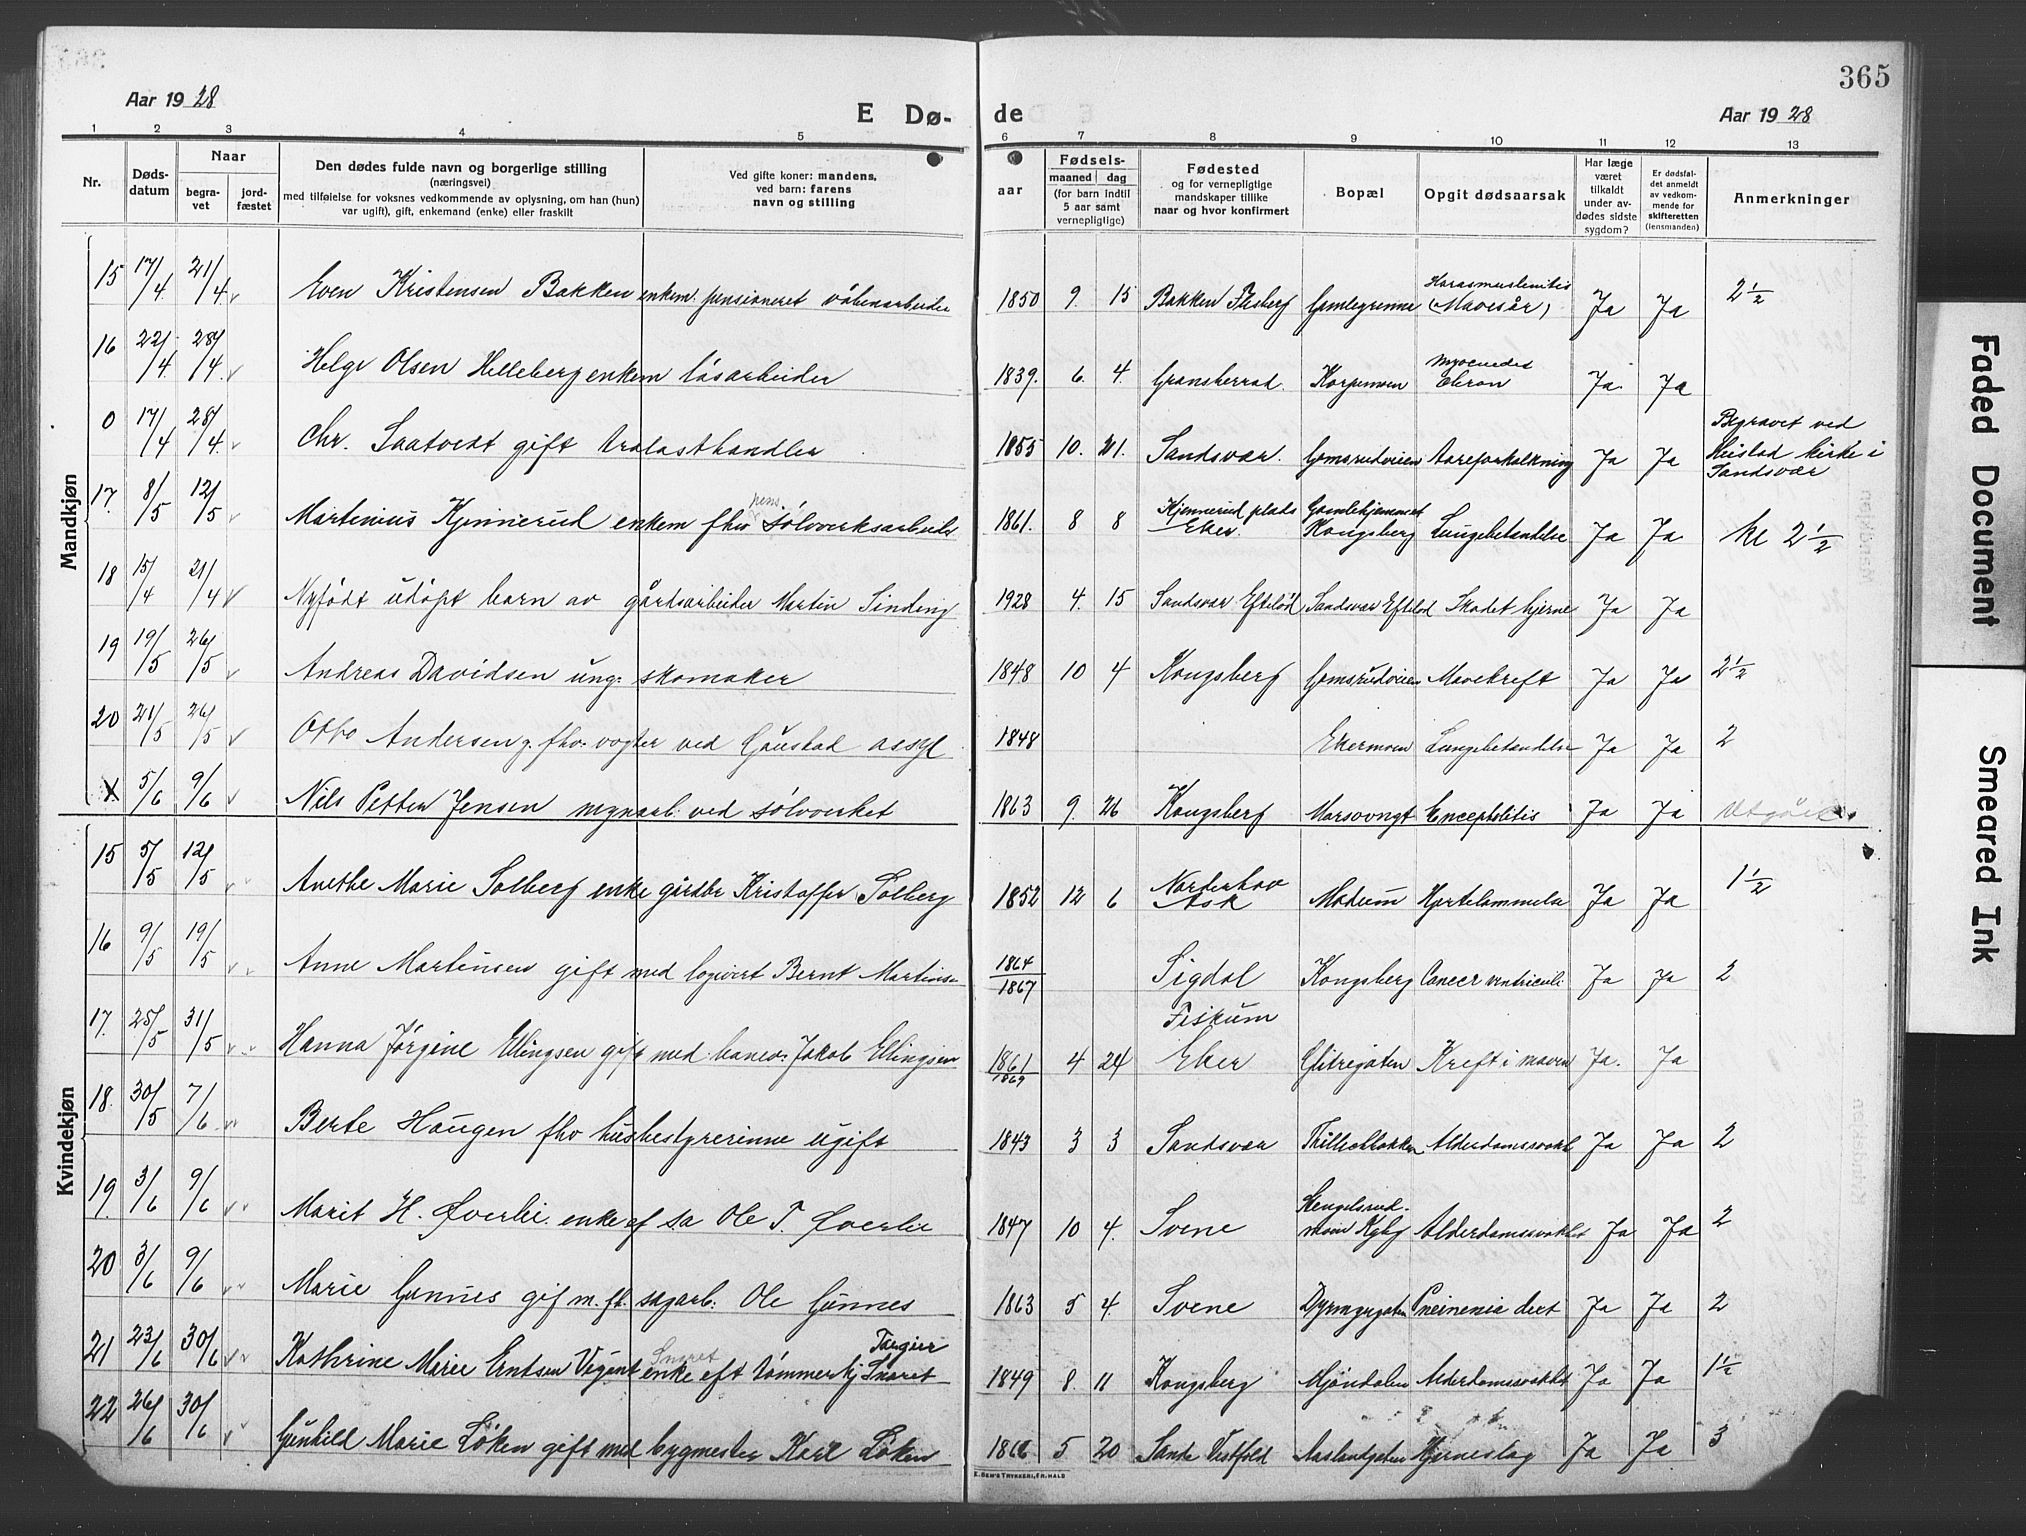 365
Aar 1928
E Dø-
de
Aar 1928
1 2 3 4 5 6 7 8 9 10 11 12 13
Nr.
Døds-
datum
Naar
begra-
vet
jord-
fæstet
Den dødes fulde navn og borgerlige stilling
(næringsvei)
med tilføielse for voksnes vedkommende av oplysning, om han (hun)
var ugift), gift, enkemand (enke) eller fraskilt
Ved gifte koner: mandens,
ved barn: farens
navn og stilling
aar
Fødsels-
maaned dag
(for barn indtil
5 aar samt
vernepligtige)
Fødested
og for vernepligtige
mandskaper tillike
naar og hvor konfirmert
Bopæl
Opgit dødsaarsak
Har læge
været
tilkaldt
under av-
dødes sidste
sygdom?
Er dødsfal-
det anmeldt
av vedkom-
mende for
skifteretten
(lensmanden)
Anmerkninger
Mandkjøn
15 17/4 21/4 Even Kristensen Bakken enkem. pensioneret våbenarbeider 1850 9. 15 Bakken Flesberg Gamlegrenna (Mavesår) Ja Ja 2 1/2
16 22/4 28/4 Helge Olsen Helleberg enkem løsarbeider 1839. 6. 4. Gransherrad. Korpemoen Ja Ja
0 17/4 28/4 Chr. Saatvedt gift trælasthandler 1855 10. 21. Sandsvær. Gomsrudveien Aareforkalkning Ja Ja Begravet ved
Heistad kirke i
Sandsvær
17. 8/5 12/5 Martinius Kjennerud enkem fhv pens. sølvverksarbeider 1861. 8 8 Kjennerud plads
Eker. Gamlehjemmet
Kongsberg Lungebetændelse Ja Ja kl 2 1/2
18 15/4 21/4 Nyfødt udøpt barn av gårdsarbeider Martin Sinding 1928 4. 15 Sandsvær Efteløt Sandsvær Efteløt Skadet hjerne Ja Ja
19 19/5 26/5 Andreas Davidsen ung. skomaker 1848 10 4 Kongsberg Gomsrudveien Mavekreft Ja Ja 2 1/2
20 21/5 26/5 Otto Andersen g. fhv. vogter ved Gaustad assyl 1848 Ekermoen Lungebetændelse Ja Ja 2
5/6 9/6 Nils Petter Jensen myntarb. ved sølvverket 1863 9. 26 Kongsberg Encephlitis Ja Ja Utgår
Kvindekjøn
15 5/5 12/5 Anethe Marie Solberg enke gårdbr Kristoffer Solberg 1852 12 6 Norderhov
Ask Modum Hjertelammelse Ja Ja 1 1/2
16 9/5 19/5 Anne Martinsen gift med logivert Bernt Martinsen 1864
1867 Sigdal Kongsberg Cancer ventriculi Ja Ja 2
17. 25/5 31/5 Hanna Jørgine Ellingsen gift med banev. Jakob Ellingsen 1861
1869 4 24 Fiskum
Eker Glitregaten Kreft i maven Ja. Ja
18. 30/5 7/6 Berte Haugen fhv husbestyrerinne ugift 1843 3 3 Sandsvær Thillischbakken Alderdomssvakh Ja Ja 2
19. 3/6 9/6 Marit H. Øverlie enke ef sa Ole T. Øverlie 1847 10 4. Svene Hengelsrud-
moen Kgbg Alderdomssvakhet Ja Ja 2
20 3/6 9/6 Marie Gunnes gif m. fh. sagarb. Ole Gunnes 1863 5 4. Svene Dyrmyrgaten Ja Ja 2
21 23/6 30/6 Kathrine Marie Erntsen Vigant Snaret enke eft tømmerhj Torgier
Snaret 1849 8. 11 Kongsberg Mjøndalen Alderdomssvakhet Ja Ja 1 1/2
22 26/6 30/6 Gunhild Marie Løken gift med bygmester Karl Løken 1866 5 20 Sande Vestfold Aaslandgaten Hjerneslag Ja Ja 3
E. SEM'S TRYKKERI, FR.HALD
Faded Document
Smeared Ink